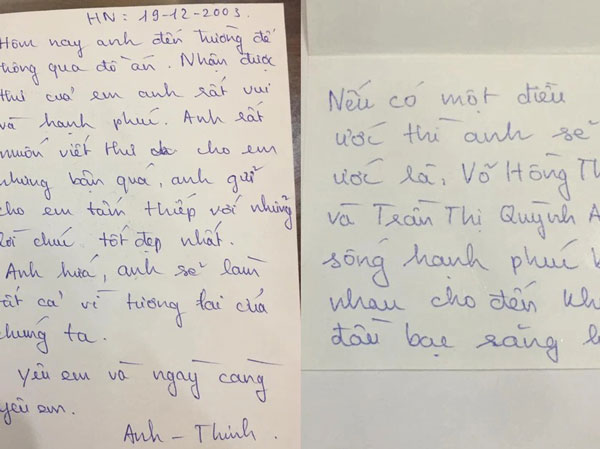 HN: 19-12-2003.
Hôm nay anh đến trường để
thông qua đồ án. Nhận được
thư của em anh rất vui
và hanh phúc. Anh rất
muốn viết thư cho em
nhưng bận quá, anh gửi
cho em tấm thiếp với những
lời chúc tốt đẹp nhất.
Anh hứa, anh sẽ làm
tất cả vì tương lai của
chúng ta.
Yêu em và ngay càng
yêu em.
Anh - Thinh.
Nếu có một điều
ước thì anh sẽ
ước là, Võ Hồng Th
và Trần Thị Quỳnh A
sống hạnh phúc b
nhau cho đến kh
đầu bạc răng l